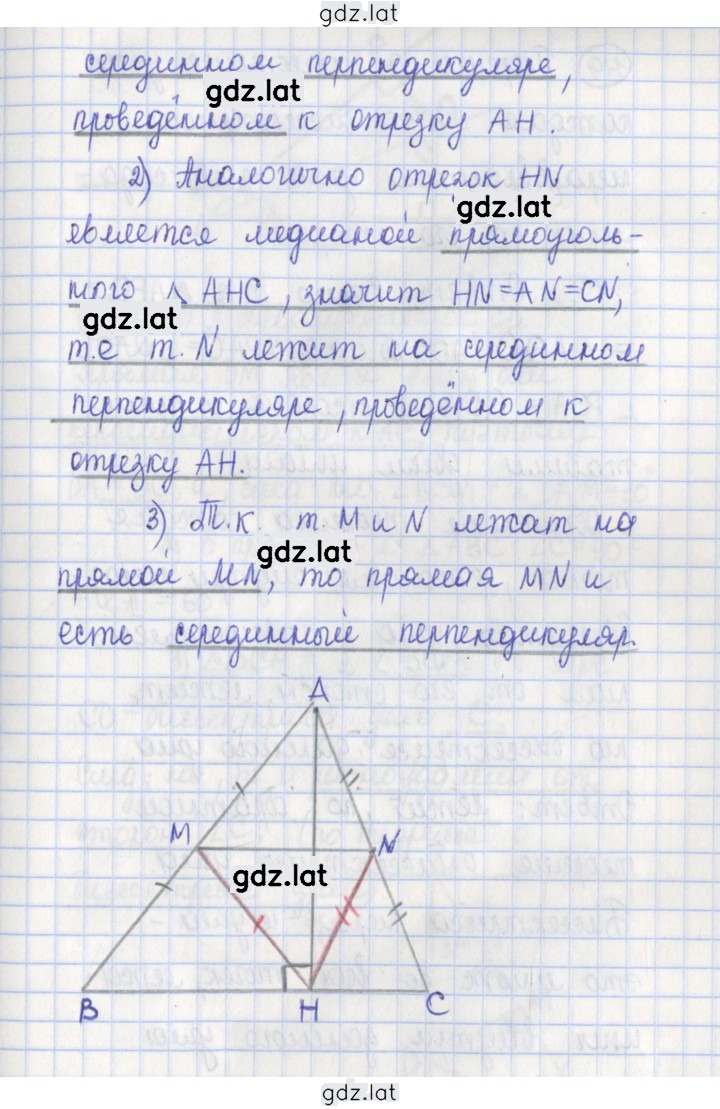 gdz.lat
серединном перпендикуляре,
gdz.lat
проведённом к отрезку AH.
2) Аналогично отрезок HN
gdz.lat
является медианой прямоуголь-
ного △ AHC, значит HN=AN=CN,
gdz.lat
т.е т. N лежит на серединном
перпендикуляре, проведённом к
отрезку AH.
3) Т.к. т. M и N лежат на
gdz.lat
прямой MN, то прямая MN и
есть серединный перпендикуляр.
A
M N
gdz.lat
B H C
gdz.lat